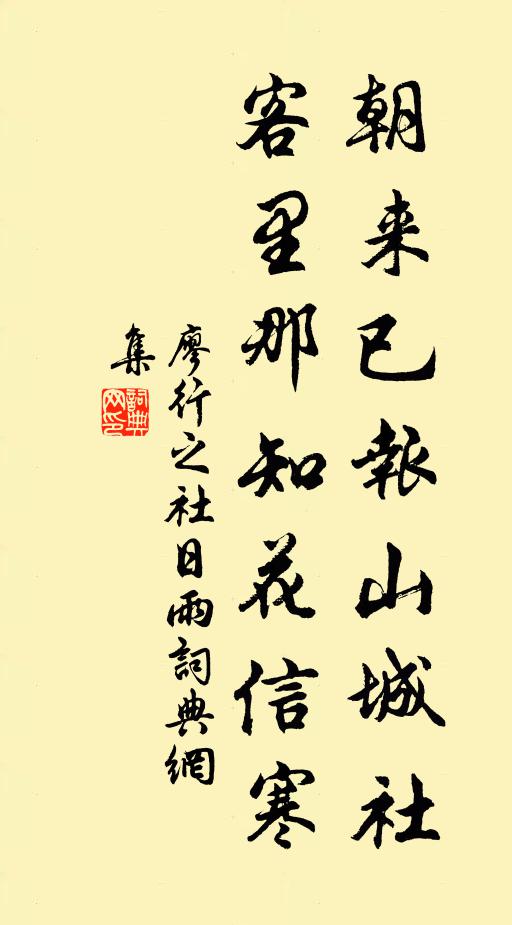 朝来已報山城社
客里那知花信寒
廖行之社日雨詞典網
集
詞典网印